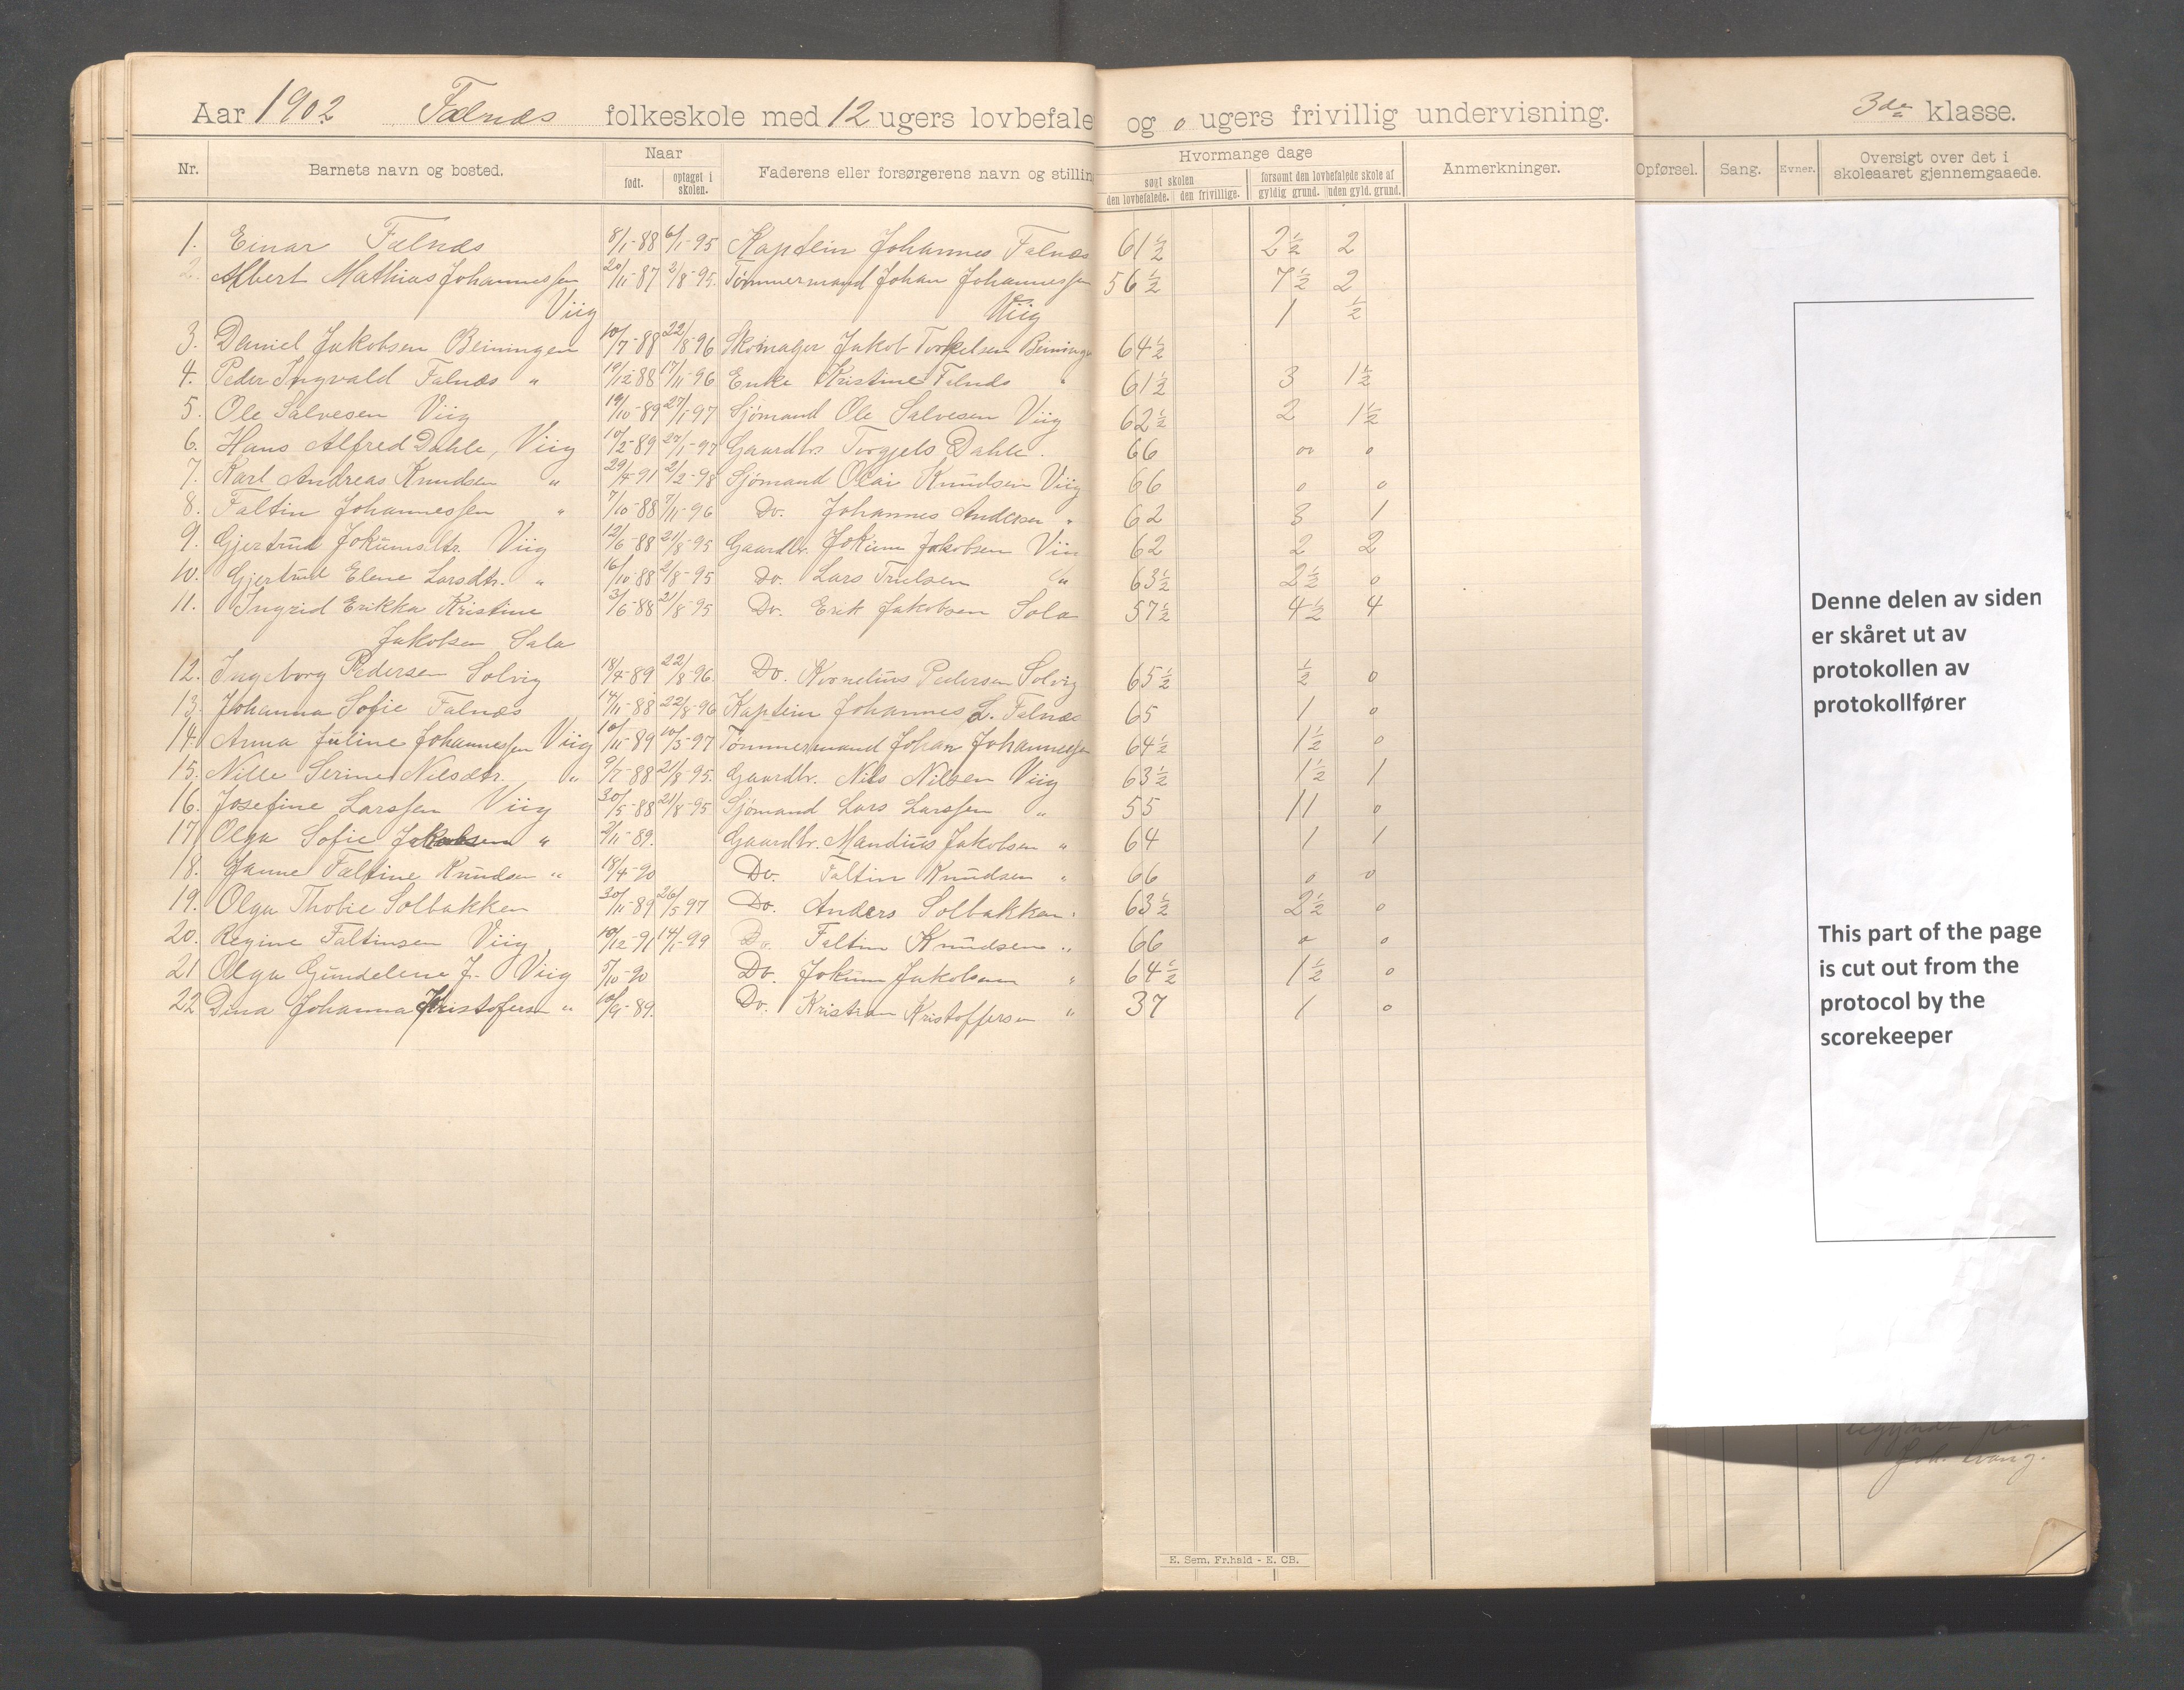 Aar 1902 Falnæs folkeskole med 12 ugers lovbefale og 0 ugers frivillig undervisning. 3die klasse.
Nr. Barnets navn og bosted. Naar født. optaget i skolen. Faderens eller forsørgerens navn og stillin Hvormange dage søgt skolen den lovbefalede. den frivillige. forsømt den lovbefalede skole af gyldig grund. uden gyld. grund. Anmerkninger. Opførsel. Sang. Evner. Oversigt over det i skoleaaret gjennemgaaede.
1. Einar Falnæs 8/1-88 6/1-95 Kaptein Johannes Falnæs 61½ 2½ 2
2. Albert Mathias Johannessen 20/11-87 2/8-95. Tømmermand Johan Johannessen 56½ 7½ 2
Viig Viig 1 ½
3. Daniel Jakobsen Beiningen 10/7-88 22/8-96 Skomager Jakob Torkelsen Beininge 64½
4. Peder Ingvald Falnæs " 19/12-88 17/11-96 Enke Kristine Falnæs " 61½ 3 1½
5. Ole Salvesen Viig 19/10-89 27/1-97 Sjømand Ole Salvesen Viig 62½ 2 1½
6. Hans Alfred Dahle, Viig 10/2-89 27/1-97 Gaardbr. Torgjels Dahle. 66 0 0
7. Karl Andreas Knudsen " 29/4-91 2/2-98 Sjømand Olai Knudsen Viig 66 0 0
8. Faltin Johannessen " 7/10-88 7/11-96 Do. Johannes Andersen " 62 3 1
9. Gjertrud Jokumsdtr. Viig 12/6-88 21/8-95 Gaardbr. Jokum Jakobsen Viig 62 2 2
10. Gjertrud Elene Larsdtr. " 16/10-88 2/8-95 Do. Lars Trulsen " 63½ 2½ 0
11. Ingrid Erikka Kristine 3/6-88 21/8-95 Do. Erik Jakobsen Sola 57½ 4½ 4
Jakobsen Sala
12. Ingeborg Pedersen Solvig 18/4-89 22/8-96. Do. Kornelius Pedersen Solvig 65½ ½ 0
13. Johanna Sofie Falnæs 14/11-88 22/8-96 Kaptein Johannes L. Falnæs 65 1 0
14. Anna Juline Johannessen Viig 10/11-89 10/3-97 Tømmermand Johan Johannessen 64½ 1½ 0
15. Nille Serine Nilsdtr. " 9/7-88 21/8-95. Gaardbr. Nils Nilsen Viig 63½ 1½ 1
16. Josefine Larssen Viig 30/5-88 21/8-95 Sjømand Lars Larssen " 55 11 0
17. Olga Sofie Jakobsen " 2/11-89. Gaardbr. Mandius Jakobsen " 64 1 1
18. Janne Faltine Knudsen " 18/4-90 Do. Faltin Knudsen " 66 0 0
19. Olga Thobie Solbakken 30/11-89 26/5 97 Do. Anders Solbakken. 63½ 2½ 0
20. Regine Faltinsen Viig 10/12-91 14/1-99 Do Faltin Knudsen " 66 0 0
21 Olga Gundelene J. Viig 5/10-90 Do. Jokum Jakobsen " 64½ 1½ 0
22 Dina Johanna Kristofersen " 10/9-89. Do. Kristian Kristoffersen " 37 1 0
Denne delen av siden
er skåret ut av
protokollen av
protokollfører
This part of the page
is cut out from the
protocol by the
scorekeeper
E. Sem. Fr.hald - E. CB.